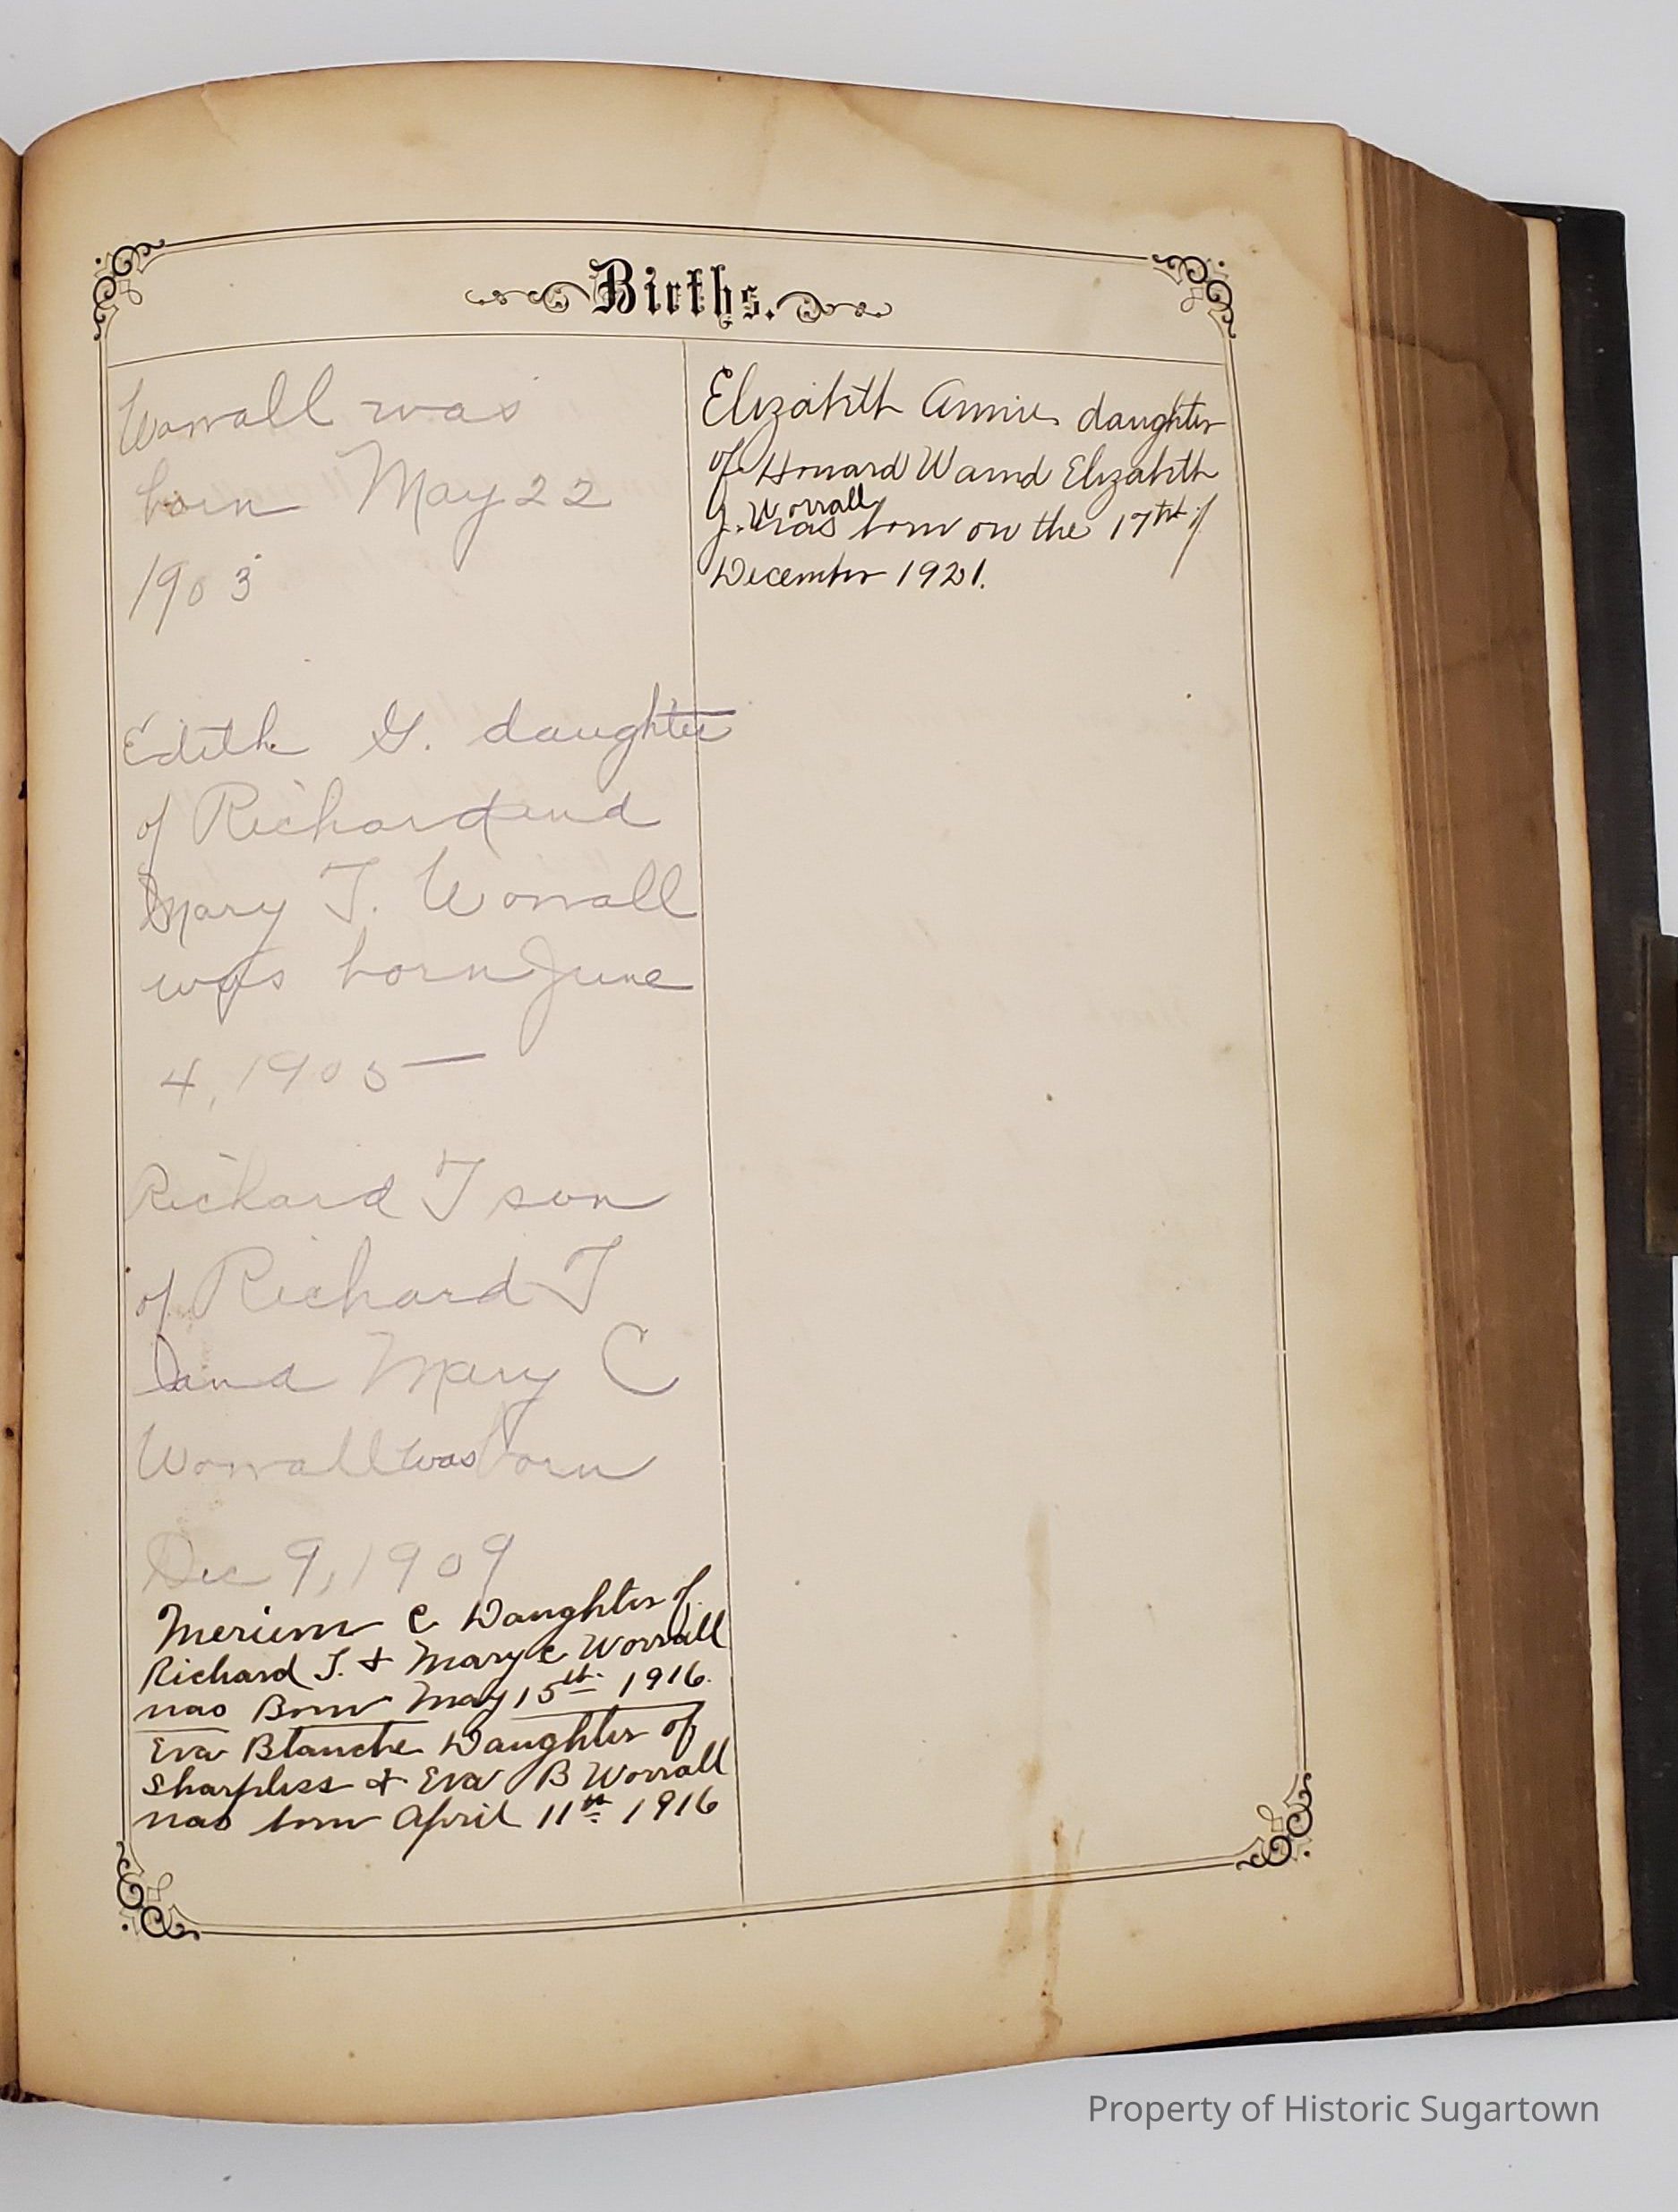 Births.
Worrall was
born May 22
1903
Edith G. daughter
of Richard and
Mary T. Worrall
was born June
4, 1905—
Richard T son
of Richard T
and Mary C
Worrall was born
Dec 9, 1909
Merium C Daughter of
Richard T. & Mary C Worrall
was Born May 15th 1916.
Eva Blanche Daughter of
Sharpless & Eva B Worrall
was born April 11th 1916
Elizabeth Annie daughter
of Howard W and Elizabeth
J. Worrall was born on the 17th of
December 1921.
Property of Historic Sugartown